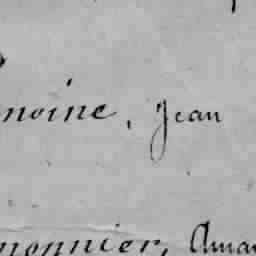 noine, Jean
monnier, Aman